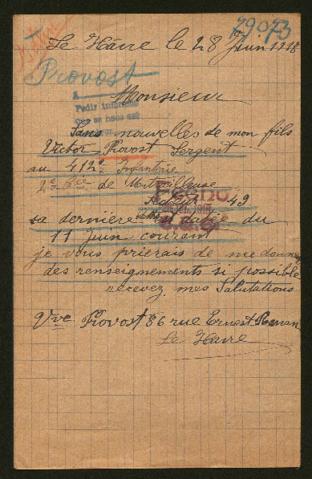 29073
Le Hâvre le 28 Juin 1918
Provost
Monsieur
Sans nouvelles de mon fils
Victor Provost Sergent
au 412e Infanterie
de Mitrailleuse
49
sa dernière datée du
11 Juin courant
je vous prierais de me donner
des renseignements si possible
recevez mes Salutations
Vve Provost 86 rue Ernest Renan
Le Havre